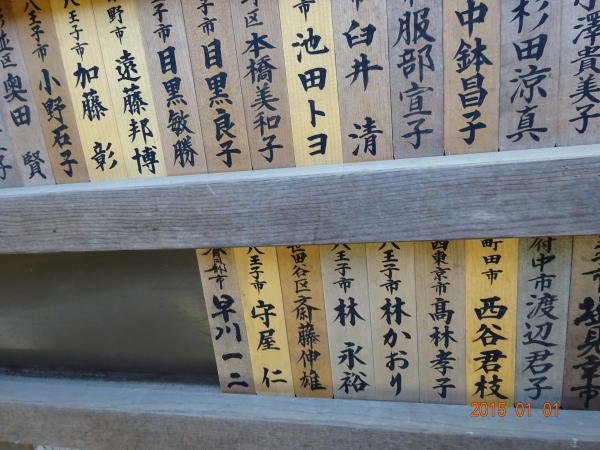 水澤貴美子
杉田涼真
中鉢昌子
服部宣子
臼井 清
市 池田トヨ
区 本橋美和子
市 目黒良子
子市 目黒敏勝
野市 遠藤邦博
八王子市 加藤 彰
八王子市 小野石子
区 奥田 賢
府中市 渡辺君子
町田市 西谷君枝
西東京市 髙林孝子
八王子市 林かおり
八王子市 林 永裕
世田谷区 斎藤伸雄
八王子市 守屋 仁
市 早川一二
2015 01 01